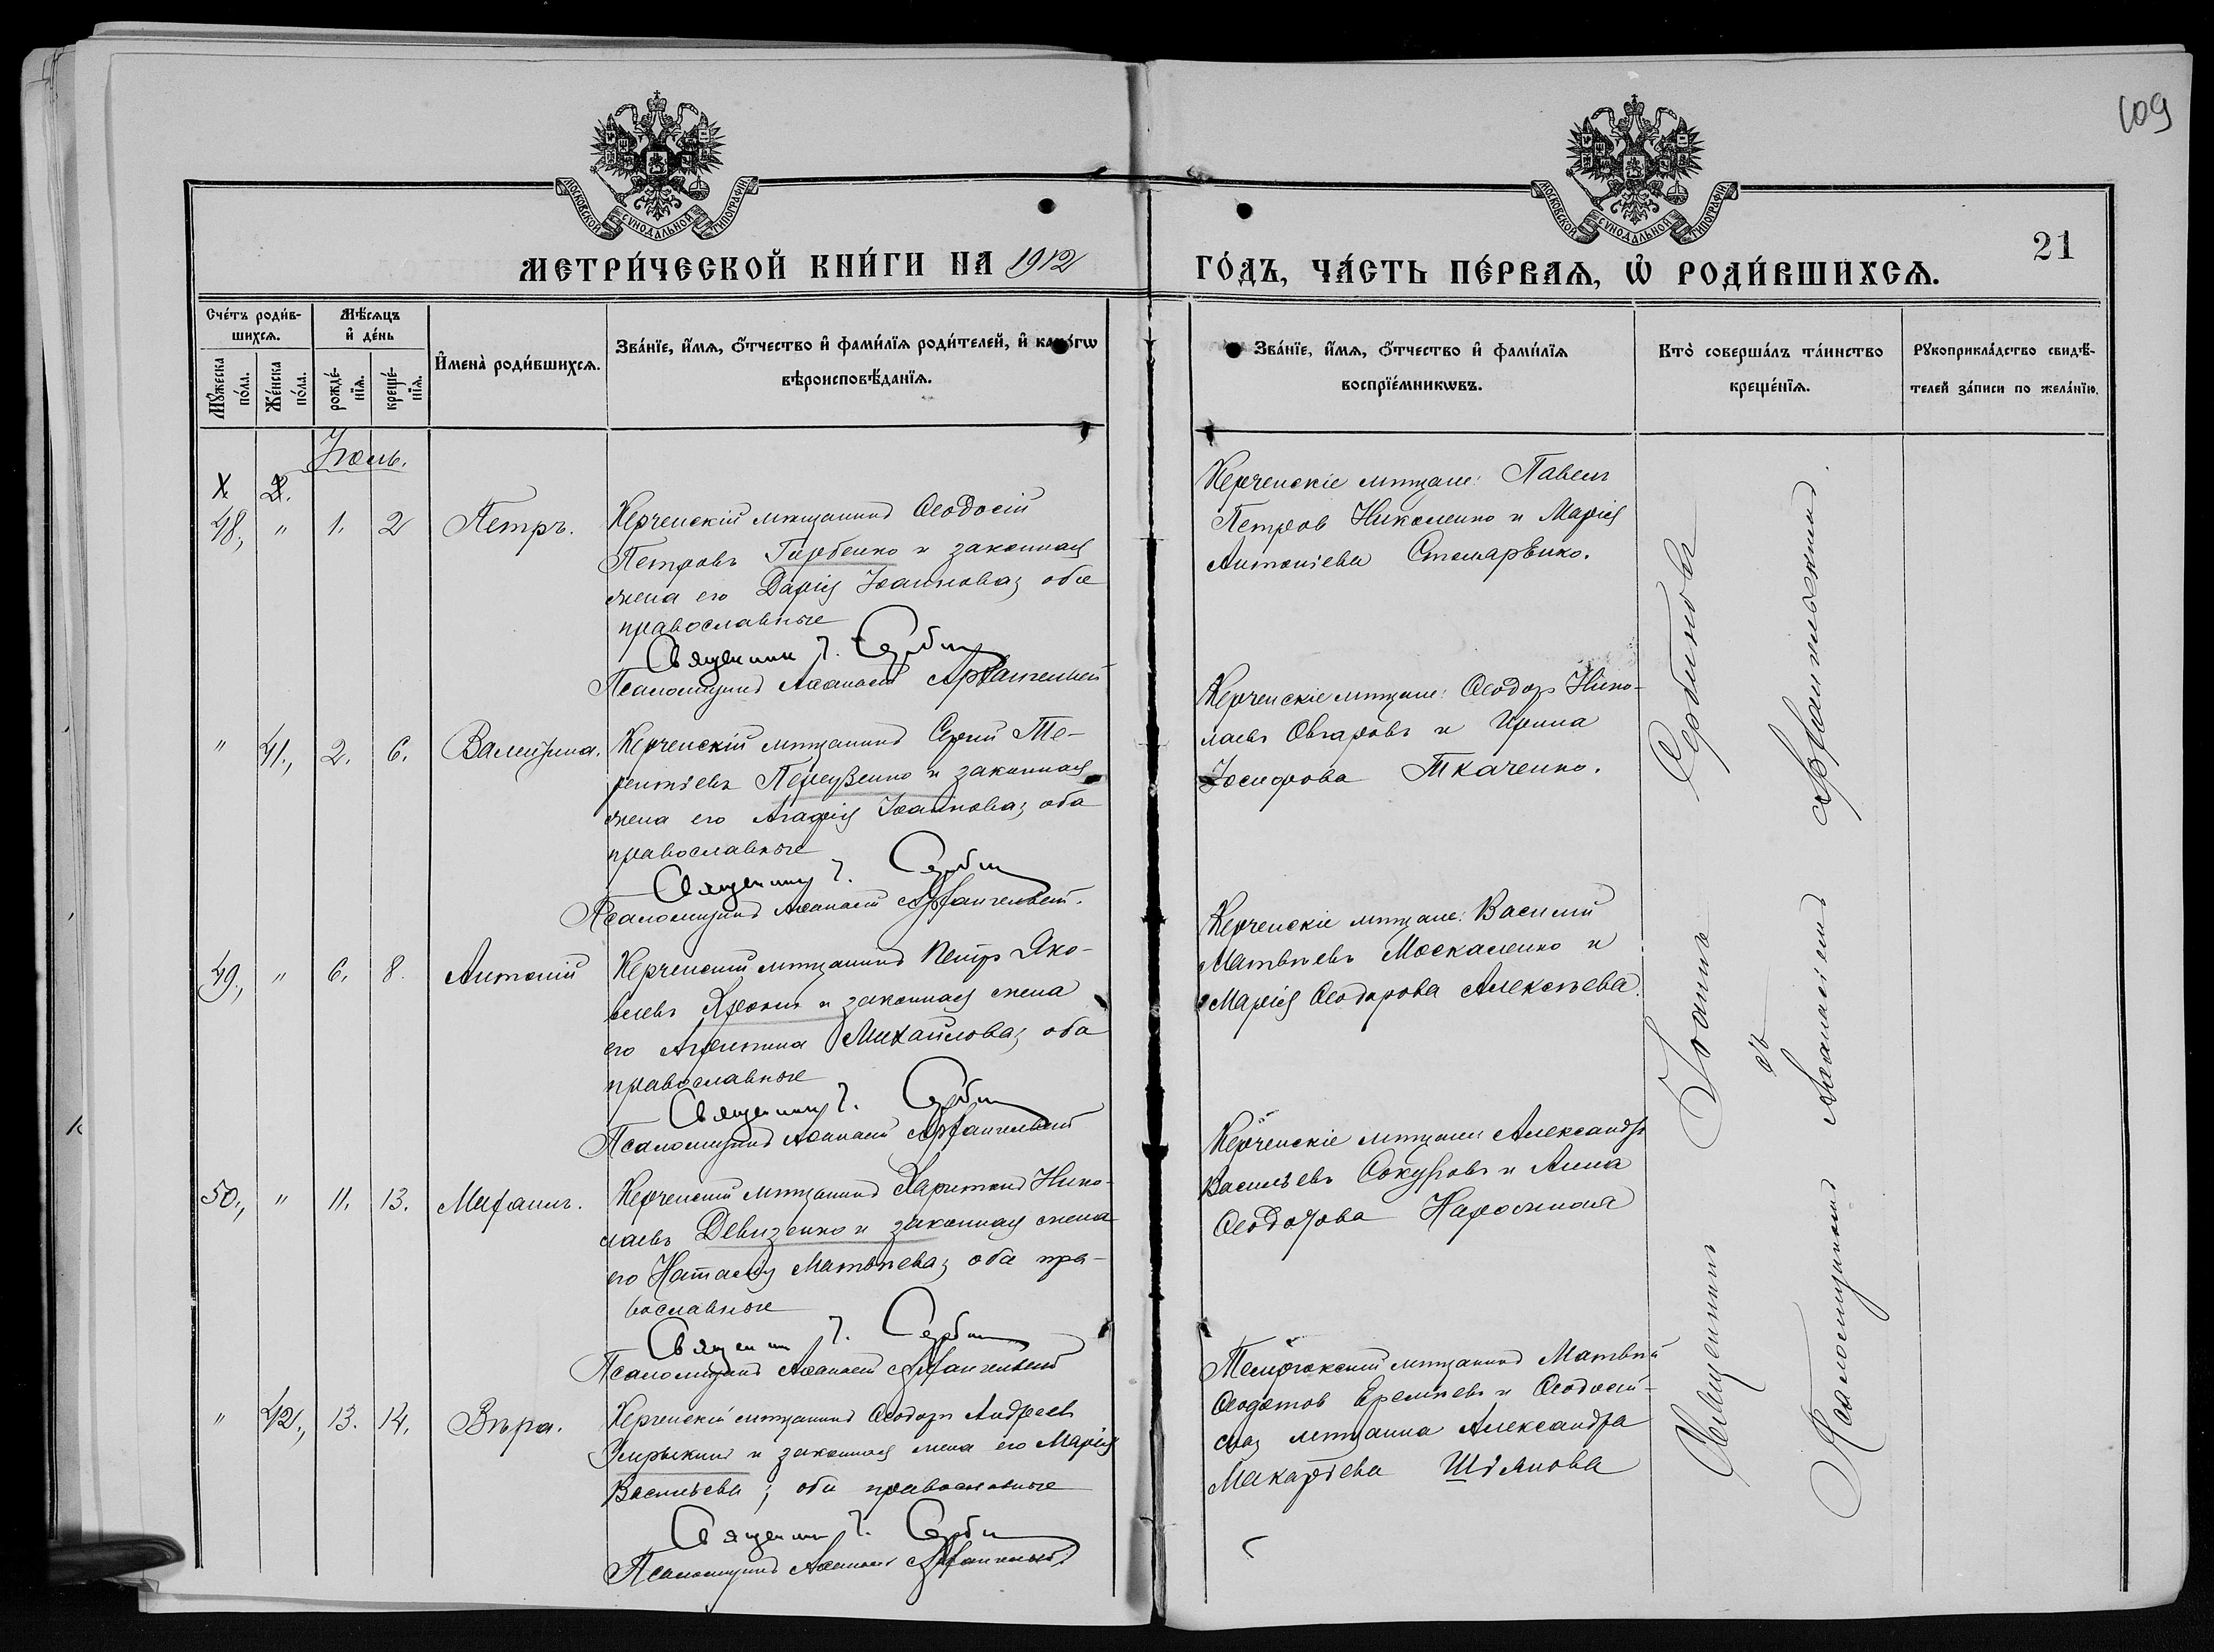 109
МОСКОВСКОЙ СѴНОДАЛЬНОЙ ТИПОГРАФІИ
МОСКОВСКОЙ СѴНОДАЛЬНОЙ ТИПОГРАФІИ
МЕТРИ́ЧЕСКОЙ КНИ́ГИ НА 1912
ГО́ДЪ, ЧА́СТЬ ПЕ́РВАѦ, Ѡ҆ РОДИ́ВШИХСѦ.
21
Сче́тъ роди́в-
шихсѧ.
Мꙋ́жеска
по́ла.
Же́нска
по́ла.
Мѣ́сѧцъ
и҆ де́нь
рожде́-
нїѧ.
креще́-
нїѧ.
И҆мена̀ роди́вшихсѧ.
Зва́нїе, и҆́мѧ, ѻ҆́тчество и҆ фами́лїѧ роди́телей, и҆ како́гѡ
вѣроисповѣ́данїѧ.
Зва́нїе, и҆́мѧ, ѻ҆́тчество и҆ фами́лїѧ
воспрїе́мникѡвъ.
Кто̀ соверша́лъ та́инство
креще́нїѧ.
Рꙋкоприкла́дство свидѣ́-
телей за́писи по жела́нїю.
Іюль.
48., " 1. 2 Петръ.
Керченскій мѣщанинъ Ѳеодосій
Петровъ Горбенко и законная
жена его Дарія Іоаннова; оба
православные
Священник І. Сербин
Псаломщикъ Аѳанасій Архангельскій
Керченскіе мѣщане: Павелъ
Петров Николенко и Марія
Антоніева
" 41., 2. 6. Валентина.
Керченскій мѣщанинъ Сергій Те-
рентіевъ и законная
жена его Агафія Іоаннова; оба
православные
Священник І. Сербин
Псаломщикъ Аѳанасій Архангельскій.
Керченскіе мѣщане: Ѳеодор Нико-
лаевъ Овчаровъ и Ирина
Іосифова Ткаченко.
49., " 6. 8. Антоній
Керченскій мѣщанинъ Петръ Яко-
влевъ и законная жена
его Михайлова; оба
православные
Священник І. Сербин
Псаломщикъ Аѳанасій Архангельскій
Керченскіе мѣщане: Василій
Матвѣевъ Москаленко и
Марія Ѳеодорова Алексѣева.
50., " 11. 13. Михаилъ.
Керченскій мѣщанинъ Харитонъ Нико-
лаевъ Девизенко и законная жена
его Наталія Матвѣева; оба пра-
вославные
Священник І. Сербин
Псаломщикъ Аѳанасій Архангельскій
Керченскіе мѣщане Александръ
Васильевъ Сокуровъ и Анна
Ѳеодорова Нарожная
" 42., 13. 14. Вѣра.
Керченскій мѣщанинъ Ѳеодоръ Андреев
и законная жена его Марія
Васильева; оба православные
Священник І. Сербин
Псаломщикъ Аѳанасій Архангельскій
мѣщанинъ Матвѣй
Еремѣевъ и Ѳеодосій-
ская мѣщанка Александра
Макаріева
Священникъ Іоаннъ Сербиновъ
съ
Псаломщикомъ Аѳанасіемъ Архангельскимъ.